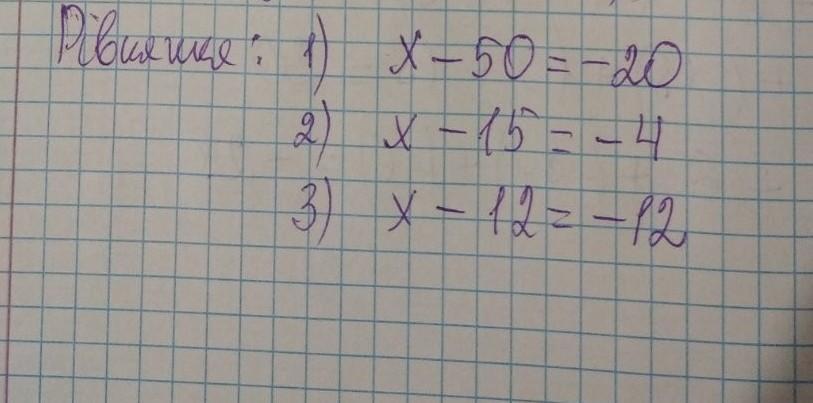 Рівняння: 1) x - 50 = -20
2) x - 15 = -4
3) x - 12 = -12